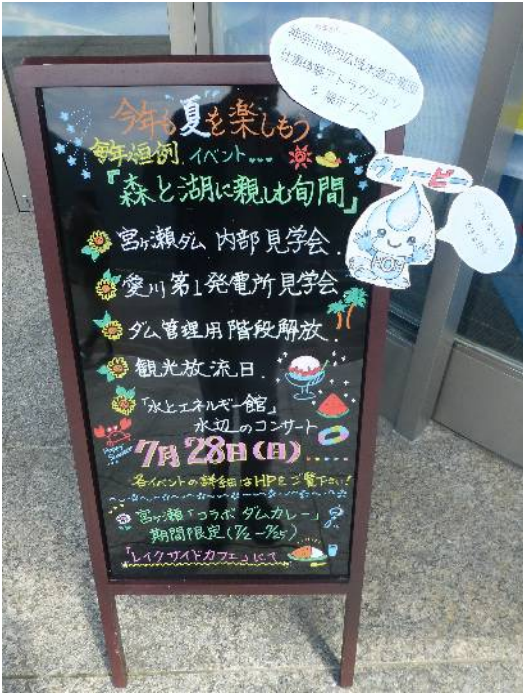 神奈川県内広域水道企業団
体験アトラクション
& 展示ブース
ウォーピー
HOH
今年も夏を楽しもう!
毎年恒例 イベント・・・
『森と湖に親しむ旬間』
宮ヶ瀬ダム 内部見学会
愛川第1発電所見学会
ダム管理用階段解放
観光放流日
「水とエネルギー館」
水辺のコンサート
Happy Summer
7月28日(日)・・・・
各イベントの詳細はHPをご覧下さい!
宮ヶ瀬「コラボダムカレー」
期間限定(7/2~7/25)
「レイクサイドカフェ」にて